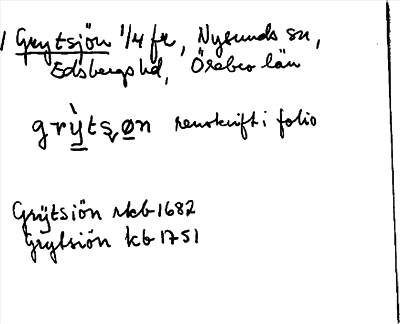 Grytsjön 1/4 fr, Nysunds sn,
Edsbergs hd, Örebro län
grỳtsøn renskrift i folio
Grÿtsiön rkb 1682
Grytsiön kb 1751